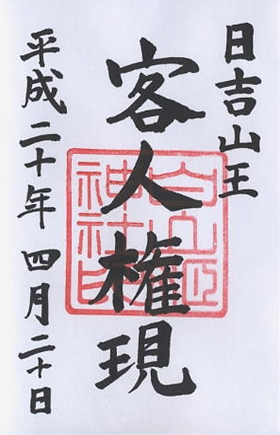 日吉山王
客人権現
平成二十年 四月二十日
白山姫
神社印